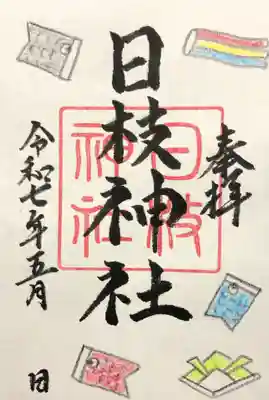 奉拝
日枝神社
日枝神社
令和七年五月 日